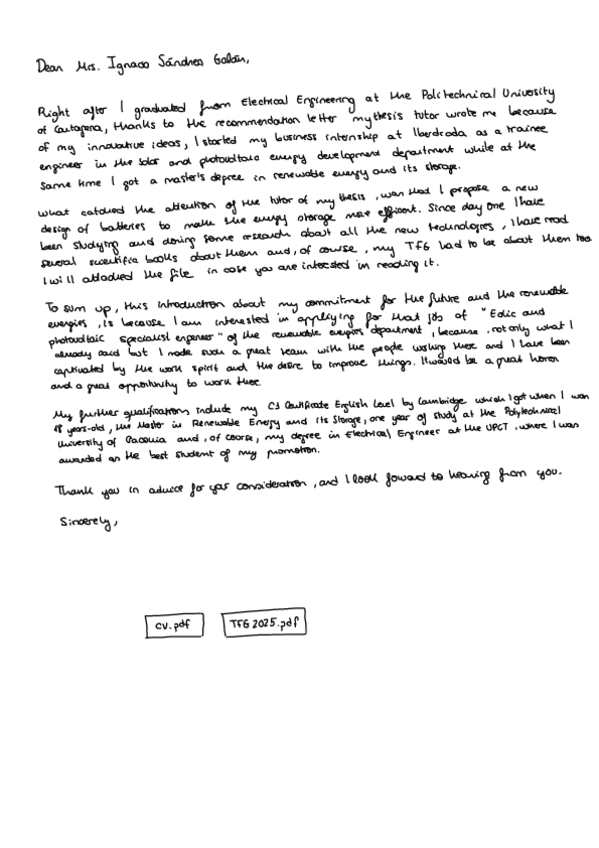 Dear Mrs. Ignacio Sándrea Galán,
Right after I graduated from Electrical Engineering at the Politechnical Univesity
of Cartagena, thanks to the recommendation letter my thesis tutor wrote me because
of my innovative ideas, I started my business internship at Iberdrola as a trainee
engineer in the solar and photovoltaic energy development department while at the
same time I got a master's degree in renewable energy and its storage.
What catched the attention of the tutor of my thesis, was that I propose a new
design of batteries to make the energy storage more efficent. Since day one I have
been studying and doing some research about all the new technologies, I have read
several scientific books about them and, of course, my TFG had to be about them too
I will attached the file in case you are intersted in reading it.
To sum up, this introduction about my commitment for the future and the renewable
energies, is because I am interested in applying for that job of "Eolic and
photovoltaic specialist engeneer" of the renewable energies department, because, not only what I
already said but I made such a great team with the people working there and I have been
captivated by the work spirit and the desire to improve things. It would be a great honor
and a great opportunity to work there.
My further qualifications include my C1 Certificate English Level by Cambridge which I got when I was
18 years-old, the Master in Renewable Energy and its Storage, one year of study at the Polytechnical
University of and, of course, my degree in Electrical Engineer at the UPCT, where I was
awarded as the best student of my promotion.
Thank you in advice for your consideration, and I look foward to hearing from you.
Sincerely,
CV.pdf TFG 2025.pdf